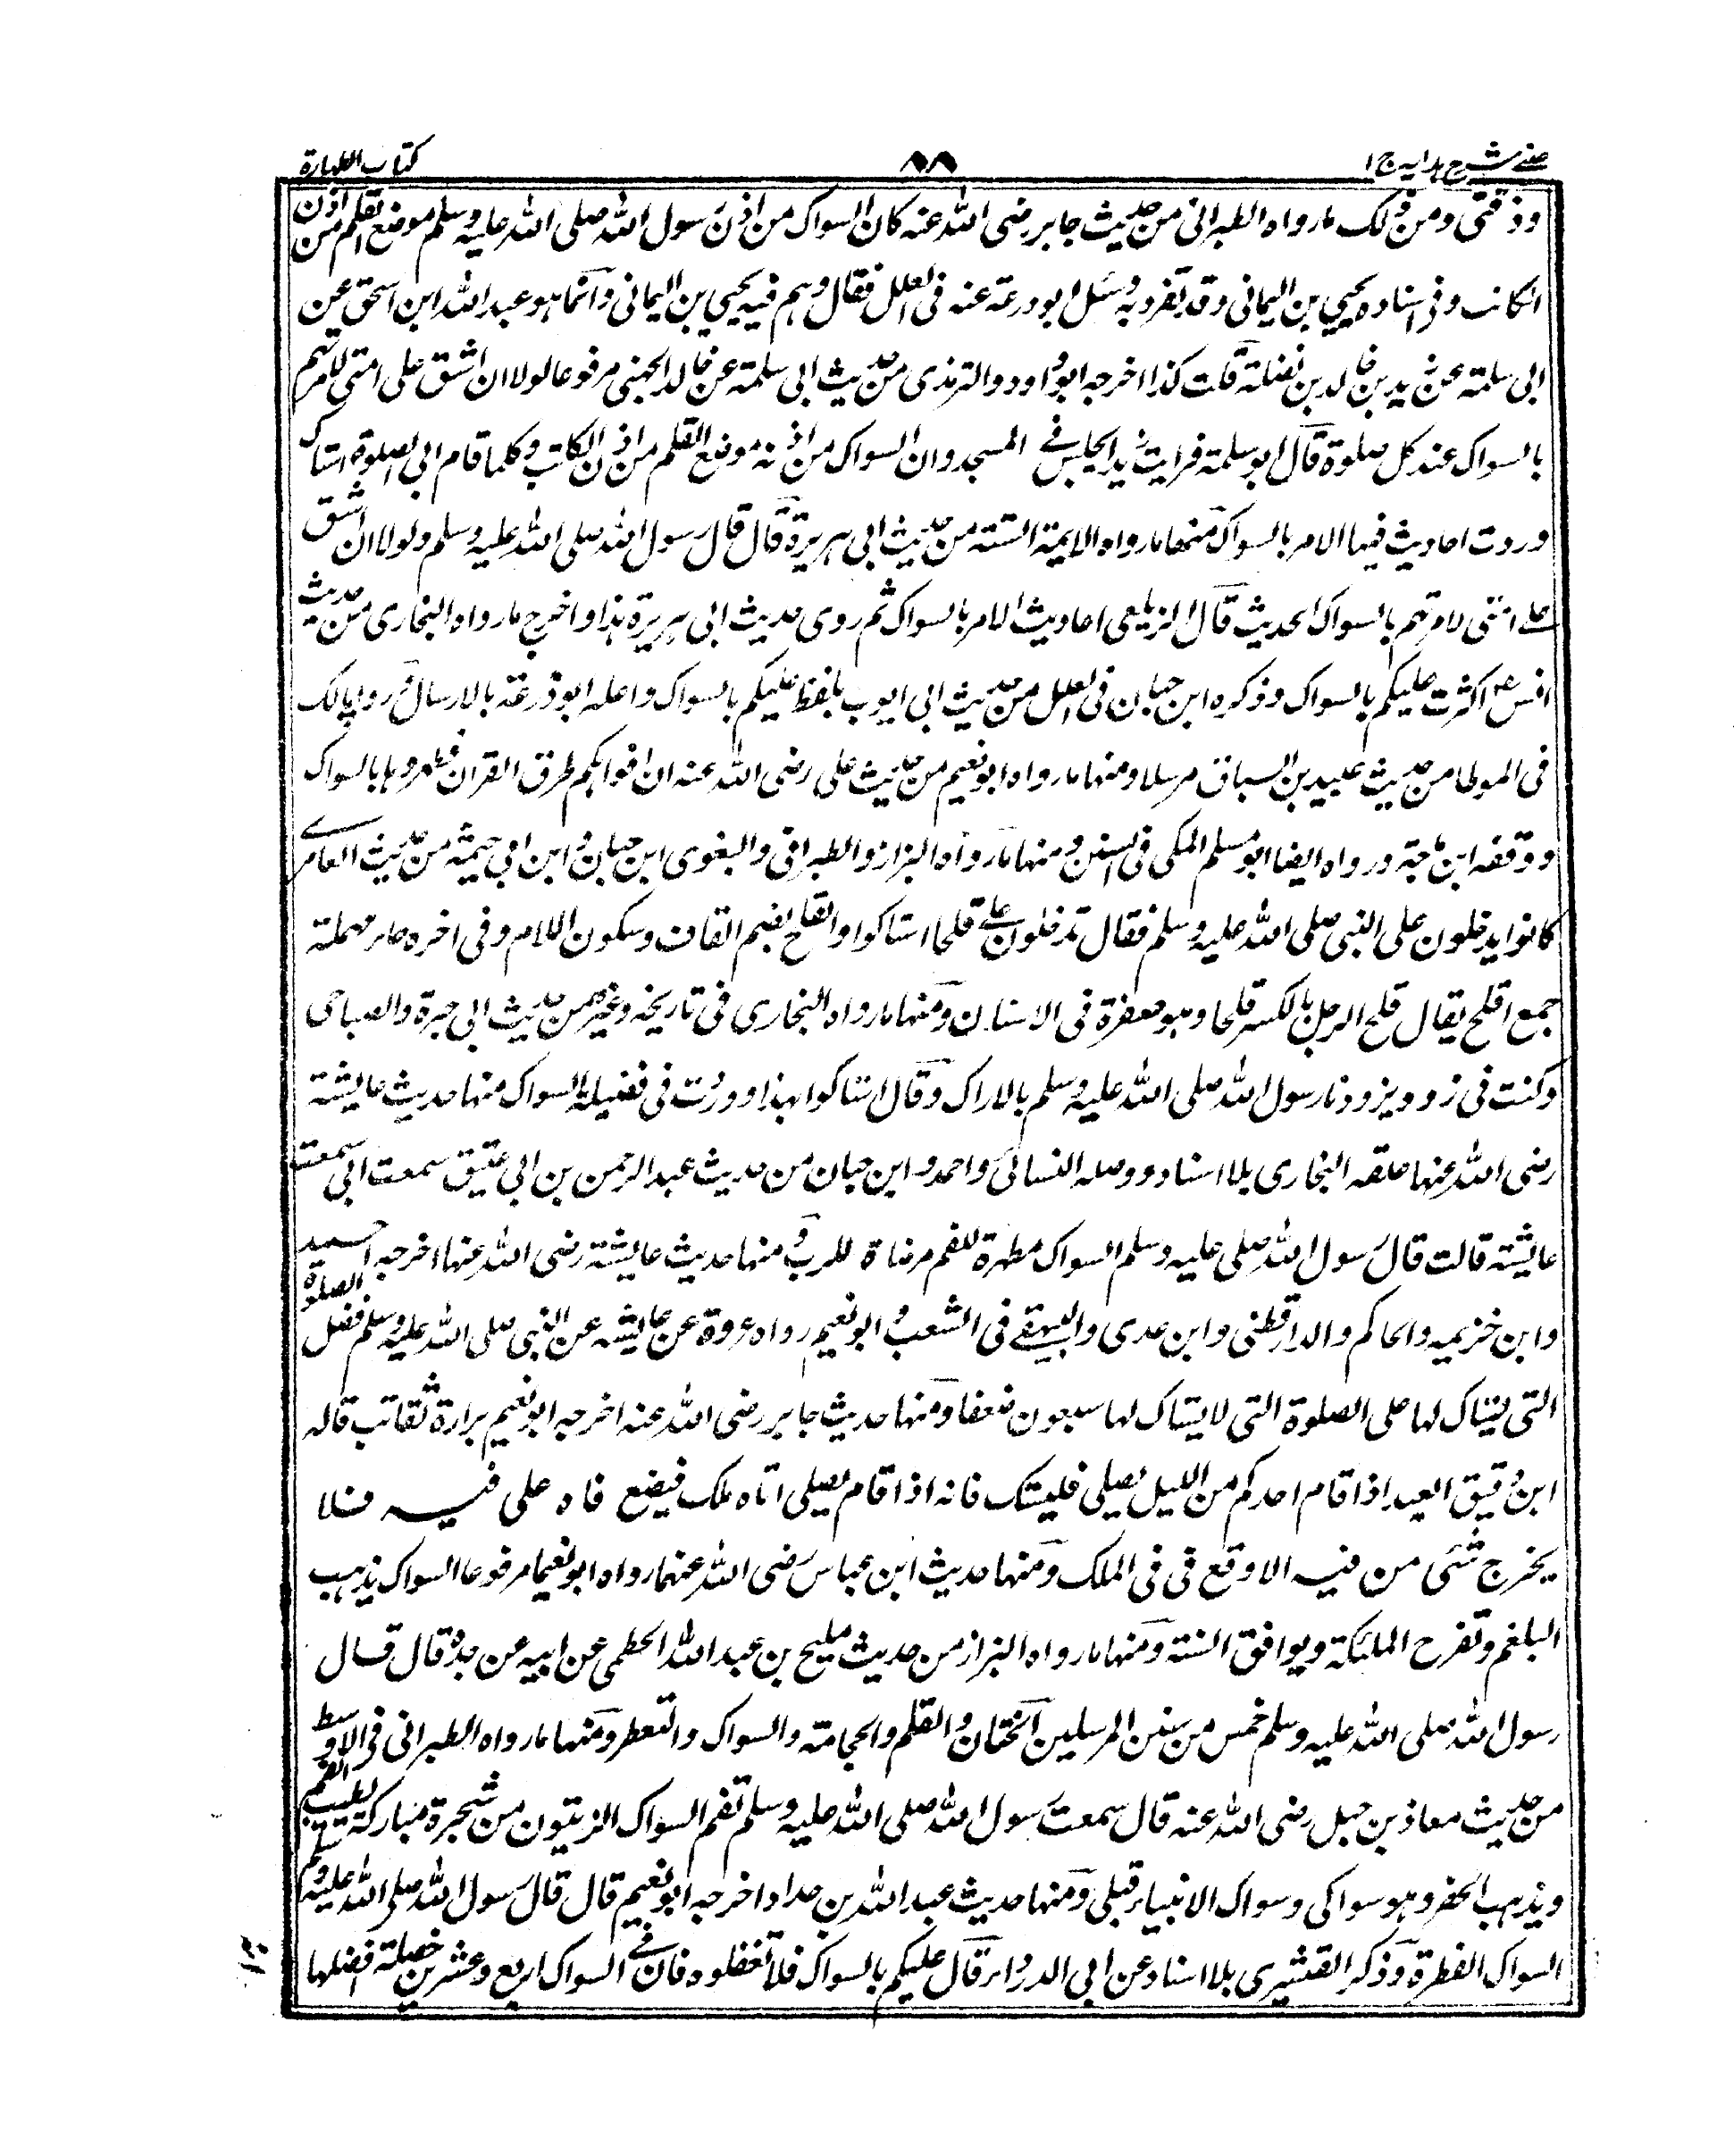 عينى شرح هدايه ج ۱ ٨٨ كتاب الطهارة
وذقنتى ومن ذلك ما رواه الطبرانى من حديث جابر رضى الله عنه كان السواك من اذن رسول الله صلى الله عليه وسلم موضع القلم من اذن
الكاتب وفى اسناده يحيى بن اليمانى وقد تفرد به وسئل ابو درعة عنه فى العلل فقال وهم فيه يحيى بن اليمانى وانما هو عبد الله ابن اسحق عن
ابى سلمة عن زيد بن خالد بن نضلة قلت كذا اخرجه ابو داود والترمذى من حديث ابى سلمة عن خالد الجهنى مرفوعا لولا ان اشق على امتى لامرتهم
بالسواك عند كل صلوة قال ابو سلمة فرايت زيد الجلس فے المسجد وان السواك من اذنه موضع القلم من اذن الكاتب وكلما قام الى الصلوة استاك
وردت احاديث فيها الامر بالسواك منها ما رواه الايمة الستة من حديث ابى هريرة قال قال رسول الله صلى الله عليه وسلم ولولا ان اشق
علے امتى لامرتهم بالسواك الحديث قال الزيلعى احاديث الامر بالسواك ثم روى حديث ابى هريرة هذا واخرج ما رواه البخارى من حديث
انس اكثرت عليكم بالسواك وذكره ابن حبان فى العلل من حديث ابى ايوب بلفظ عليكم بالسواك واعله ابو ذرعة بالارسال رواه مالك
فى الموطا من حديث عبيد بن السباق مرسلا ومنها ما رواه ابو نعيم من حديث على رضى الله عنه ان افواهكم طرق القران فطهروها بالسواك
ووقفه ابن ماجة ورواه ايضا ابو مسلم المكى فى السنن ومنها ما رواه البزاز والطبرانى والبغوى ابن حبان وابن ابى حيثمه من حديث العامرے
كانوا يدخلون على النبى صلى الله عليه وسلم فقال تدخلون علے قلحا استاكوا والقلح بضم القاف وسكون اللام وفى اخره حاء مهملة
جمع اقلح يقال قلح الرجل بالكسر قلحا وهو صفرة فى الاسنان ومنها ما رواه البخارى فى تاريخه وغيره من حديث ابى جبرة والصباحى
وكنت فى زود ويزودنا رسول الله صلى الله عليه وسلم بالاراك وقال استاكوا بهذا ووردت فى فضيلة السواك منها حديث عايشة
رضى الله عنها علقه البخارى بلا اسناد ووصله النسائى واحمد وابن حبان من حديث عبد الرحمن بن ابى عتيق سمعت ابى سمعت
عايشة قالت قال رسول الله صلى عليه وسلم السواك مطهرة للفم مرضاة للرب ومنها حديث عايشة رضى الله عنها اخرجه احمد
وابن خزيمه والحاكم والدارقطنى وابن عدى والبيهقے فى الشعب وابو نعيم رواه عروة عن عايشه عن النبى صلى الله عليه وسلم فضل الصلوة
التى يستاك لها على الصلوة التى لا يستاك لها سبعون ضعفا ومنها حديث جابر رضى الله عنه اخرجه ابو نعيم برارة ثقات قاله
ابن دقيق العيد اذا قام احدكم من الليل يصلى فليستك فانه اذا قام يصلى اتاه ملك فيضع فاه على فيه فلا
يخرج شئى من فيه الا وقع فى فى الملك ومنها حديث ابن عباس رضى الله عنهما رواه ابو نعيما مرفوعا السواك يذهب
البلغم وتفرح الملئكة ويوافق السنة ومنها ما رواه البزاز من حديث مليح بن عبد الله الحطمى عن ابيه عن جده قال قال
رسول الله صلى الله عليه وسلم خمس من سنن المرسلين الختان والقلم والحجامة والسواك والتعطر ومنها ما رواه الطبرانى فى الاوسط
من حديث معاذ بن جبل رضى الله عنه قال سمعت رسول الله صلى الله عليه وسلم نعم السواك الزيتون من شجرة مباركة يطيب الفم
ويذهب الحفر وهو سواكى وسواك الانبياء قبلى ومنها حديث عبد الله بن حداد اخرجه ابو نعيم قال قال رسول الله صلى الله عليه وسلم
السواك الفطرة وذكر القشيرى بلا اسناد عن ابى الدرداء قال عليكم بالسواك فلا تغفلوه فان فے السواك اربع وعشرين خصلة افضلها